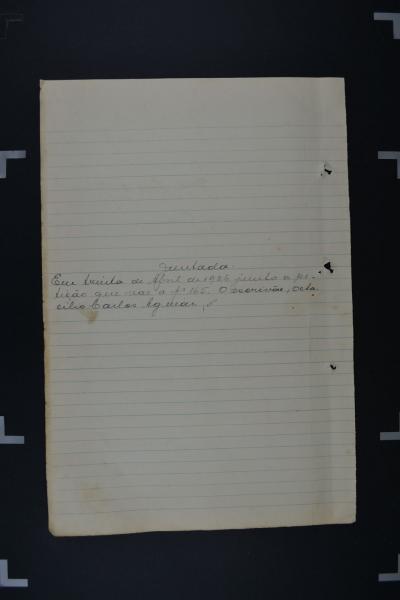 Juntada.
Em trinta de Abril de 1926 junto a pe-
tição que vae a f. 165. O escrivão, Octa
cilio Carlos Aguiar,